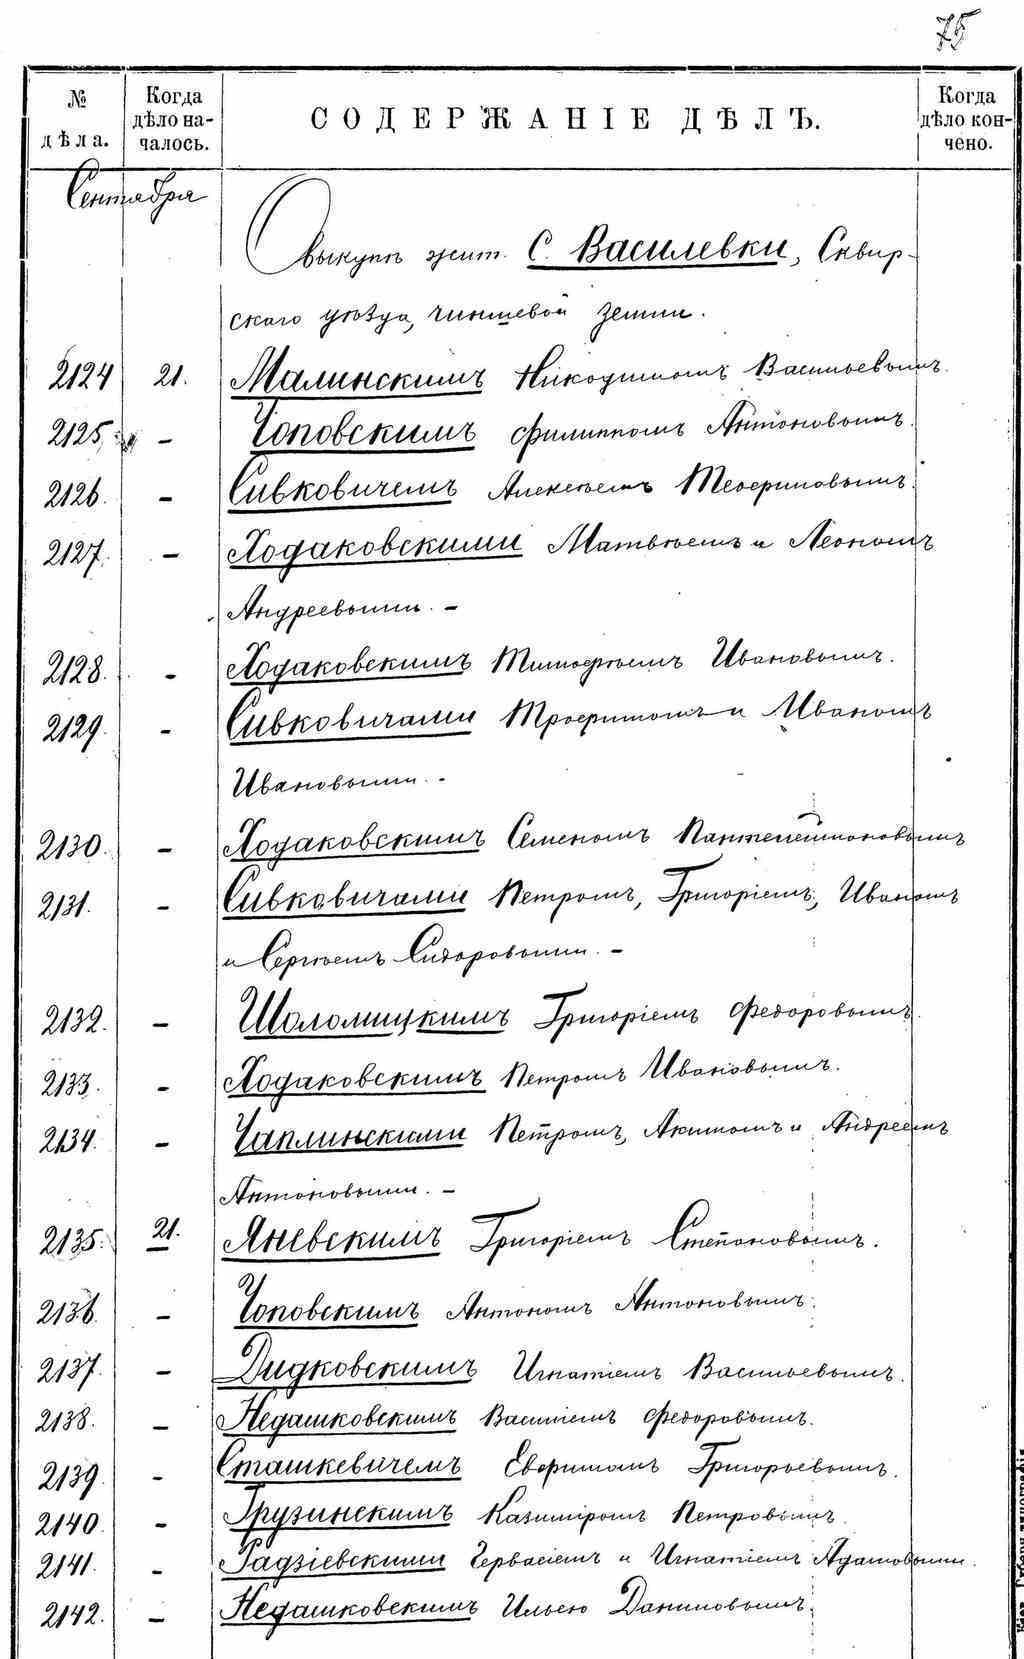 75
№ дѣла.
Когда дѣло началось.
СОДЕРЖАНІЕ ДѢЛЪ.
Когда дѣло кончено.
Сентября
О выкупѣ жит. С. Василевки, Сквир-
скаго уѣзда, чиншевой земли.
2124 21. Малинскимъ Никодимомъ Васильевымъ.
2125. - Чоповскимъ Филиппомъ Антоновымъ.
2126. - Сивковичемъ Алексѣемъ
2127. - Ходаковскими Матвѣемъ и Леономъ
Андреевыми. -
2128. - Ходаковскимъ Тимофѣемъ Ивановымъ.
2129. - Сивковичами Трофимомъ и Иваномъ
Ивановыми. -
2130. - Ходаковскимъ Семеномъ Пантелеймоновымъ
2131. - Сивковичами Петромъ, Григоріемъ, Иваномъ
и Сергѣемъ Сидоровыми. -
2132. - Шоломицкимъ Григоріемъ Федоровымъ.
2133. - Ходаковскимъ Петромъ Ивановымъ.
2134. - Чаплинскими Петромъ, Акимомъ и Андреемъ
Антоновыми. -
2135. 21. Яневскимъ Григоріемъ Степановымъ.
2136. - Чоповскимъ Антономъ Антоновымъ.
2137. - Дидковскимъ Игнатіемъ Васильевымъ.
2138. - Недашковскимъ Василіемъ Федоровымъ.
2139. - Сташкевичемъ Евфимомъ Григорьевымъ.
2140. - Грузинскимъ Казиміромъ Петровымъ.
2141. - Гадзіевскими Герваcіемъ и Игнатіемъ Адамовыми.
2142. - Недашковскимъ Ильею Даниловымъ.